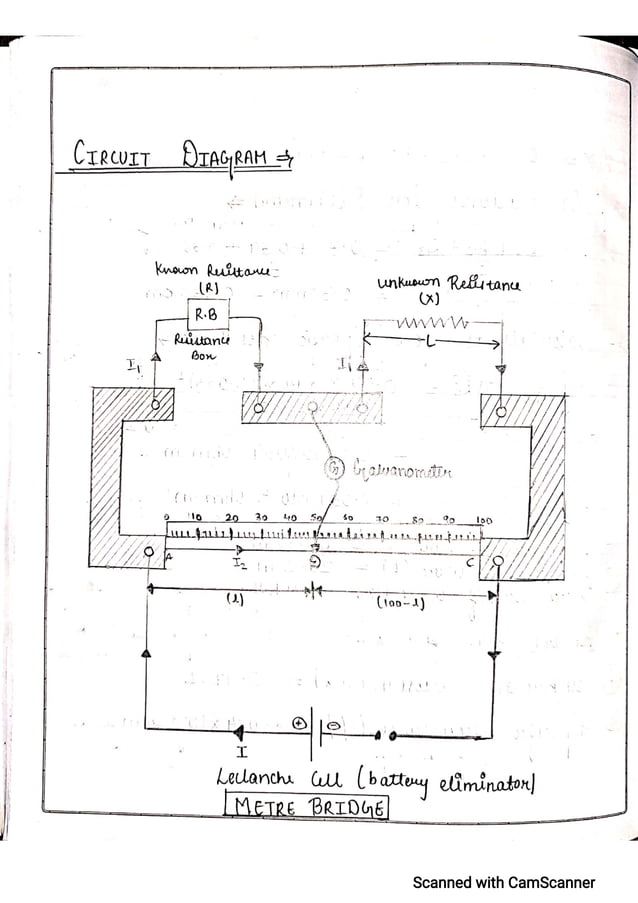 CIRCUIT DIAGRAM ⇒
Known Resistance:
(R)
R.B
Resistance
Box
I₁
unknown Resistance
(X)
L
I₁
G
Galvanometer
0 10 20 30 40 50 60 70 80 90 100
A
I₂
D
C
(l)
(100-l)
+
-
I
Leclanche Cell (battery eliminator)
METRE BRIDGE
Scanned with CamScanner